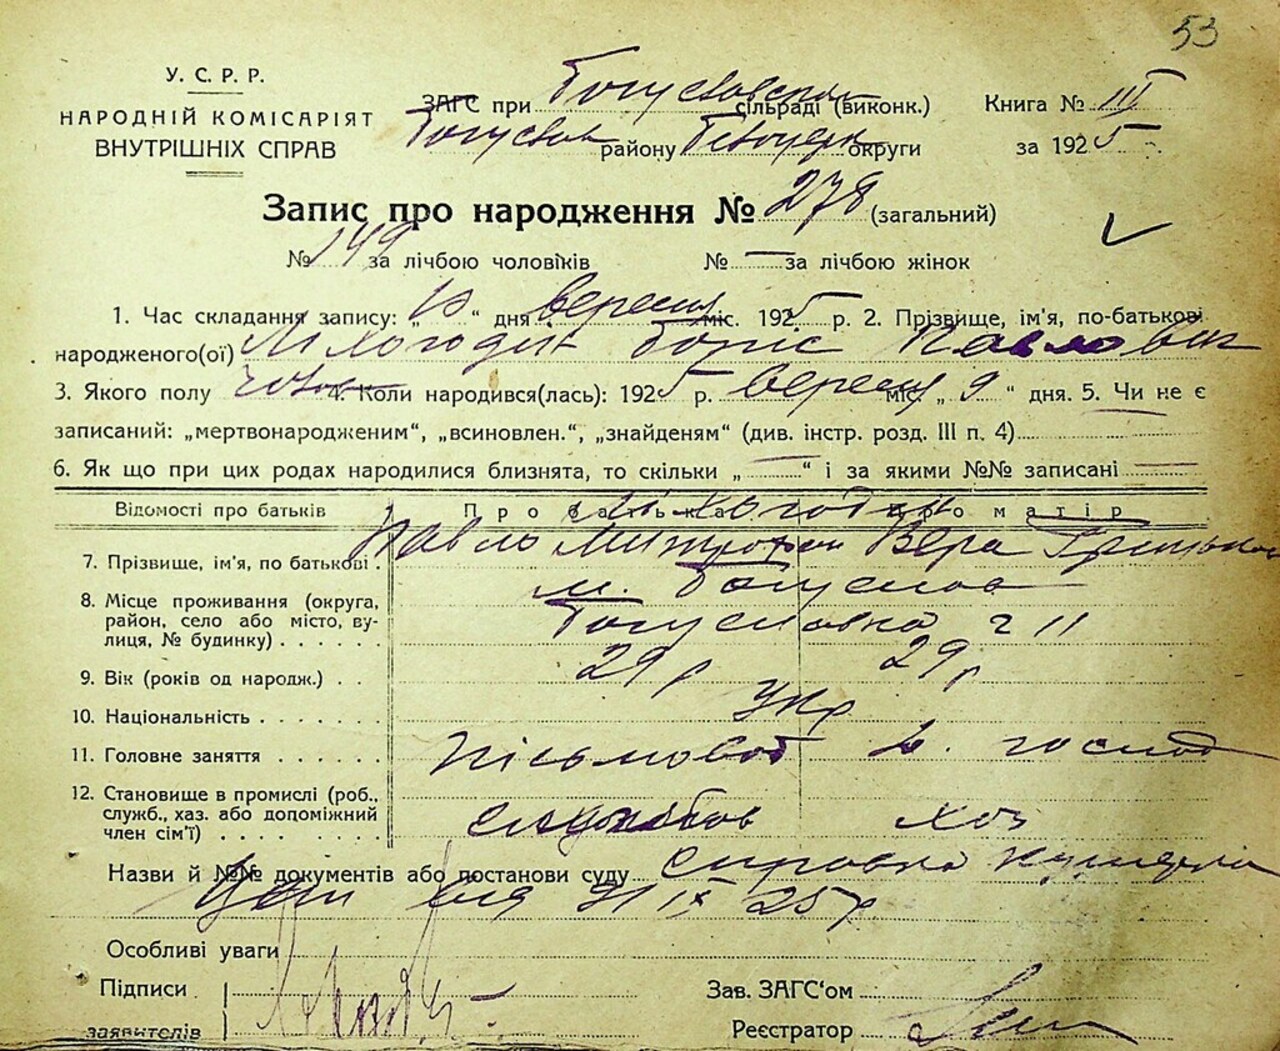 53
У. С. Р. Р.
НАРОДНІЙ КОМІСАРІЯТ
ВНУТРІШНІХ СПРАВ
ЗАГС при Богуславской сільраді (виконк.)
Богуслав району Білоцерк округи
Книга № III
за 1925
Запис про народження № 278 (загальний)
№ 149 за лічбою чоловіків № — за лічбою жінок
1. Час складання запису: „10“ дня вересня міс. 1925 р. 2. Прізвище, ім'я, по-батькові
народженого(ої) Борис Павлович
3. Якого полу чолов 4. Коли народився(лась): 1925 р. вересня міс. „9“ дня. 5. Чи не є
записаний: „мертвонародженим“, „всиновлен.“, „знайденям“ (див. інстр. розд. III п. 4)
6. Як що при цих родах народилися близнята, то скільки „—“ і за якими №№ записані —
Відомості про батьків Про батька Про матір
7. Прізвище, ім'я, по батькові. Павло Митрофан Вера
8. Місце проживання (округа, район, село або місто, вулиця, № будинку) м. Богуслав
Богуславка 2 11
9. Вік (років од народж.) 29 р 29 р
10. Національність Укр
11. Головне заняття письмовод д. господ
12. Становище в промислі (роб., служб., хаз. або допоміжний член сім'ї) службов хоз
Назви й №№ документів або постанови суду справка
від 9/IX 25 р
Особливі уваги
Підписи
заявителів
Зав. ЗАГС‘ом
Реєстратор